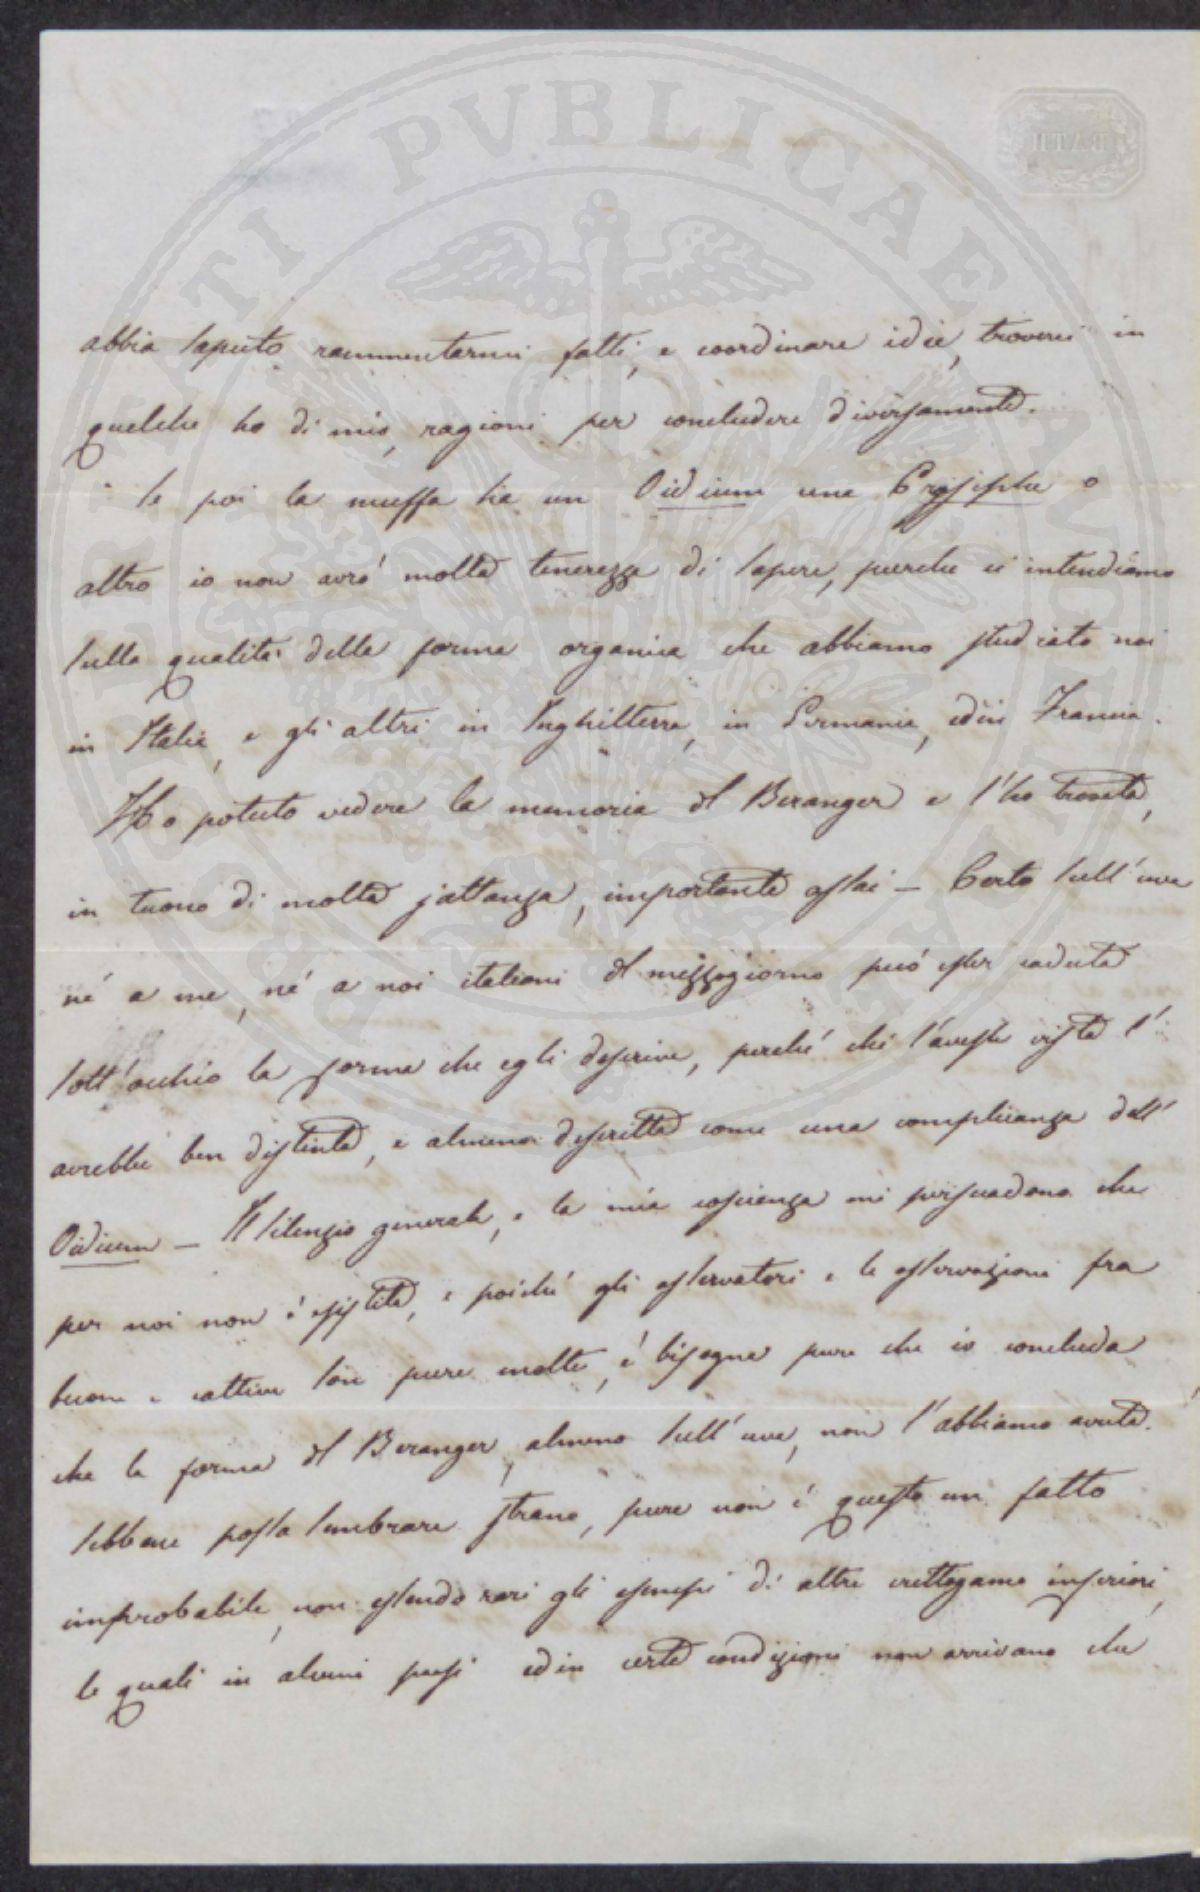 PROSPERITATI PVBLICAE AVGENDAE
BATH
abbia saputo rammentarmi fatti, e coordinare idee, troverei in
quelche ho di mio, ragioni per concludere diversamente.
Se poi la muffa sia un Oidium una Erysiphe o
altro io non avrò molta tenerezza di sapere, perche ci intendiamo
sulla qualità della forma organica che abbiamo studiato noi
in Italia, e gli altri in Inghilterra, in Germania, ed in Francia.
Ho potuto vedere la memoria del Beranger e l'ho trovata,
in tuono di molta jattanza, importante assai — Certo sull'uva
né a me, né a noi italiani del mezzogiorno può esser caduta
sott'occhio la forma che egli descrive, perché chi l'avesse vista l'
avrebbe ben distinta, e almeno descritta come una complicanza dell'
Oidium — Il silenzio generale, e la mia coscienza mi persuadono che
per noi non è esistita, e poiché gli osservatori e le osservazioni fra
buone e cattive son pure molte, è bisogna pure che io concluda
che la forma del Beranger, almeno sull'uva, non l'abbiamo avuta.
Sebbene possa sembrare strano, pure non è questo un fatto
improbabile, non essendo rari gli esempi di altre crittogame inferiori,
le quali in alcuni paesi ed in certe condizioni non arrivano che